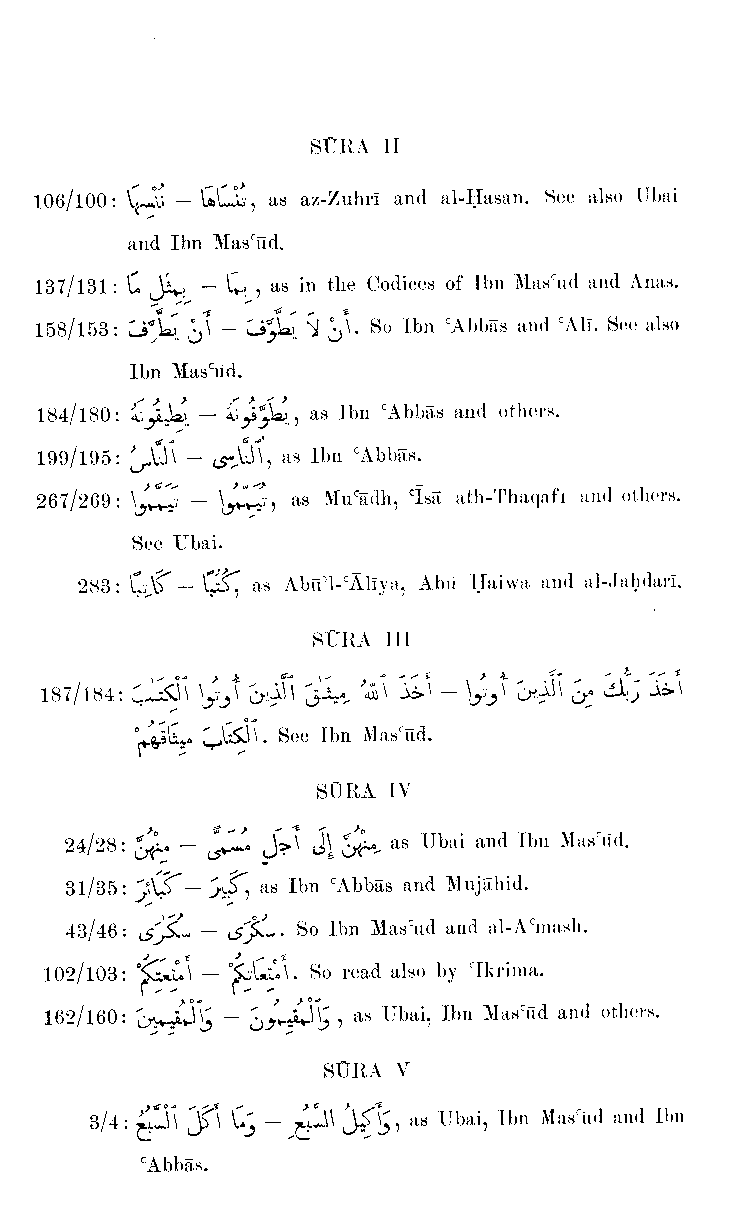 SŪRA II
106/100: نُنْسِهَا — نُنْسَاهَا, as az-Zuhrī and al-Ḥasan. See also Ubai
and Ibn Masʿūd.
137/131: بِمِثْلِ مَا — بِمَا, as in the Codices of Ibn Masʿud and Anas.
158/153: أَنْ يَطَّوَّفَ — أَنْ لَا يَطَّوَّفَ. So Ibn ʿAbbās and ʿAlī. See also
Ibn Masʿūd.
184/180: يُطِيقُونَهُ — يُطَوَّقُونَهُ, as Ibn ʿAbbās and others.
199/195: ٱلنَّاسُ — ٱلنَّاسِى, as Ibn ʿAbbās.
267/269: تَيَمَّمُوا — تُيَمِّمُوا, as Muʿādh, ʿĪsā ath-Thaqafī and others.
See Ubai.
283: كَاتِبًا — كُتُبًا, as Abū'l-ʿĀlīya, Abu Ḥaiwa and al-Jaḥdarī.
SŪRA III
187/184: أَخَذَ ٱللّٰهُ مِيثٰقَ ٱلَّذِينَ أُوتُوا ٱلْكِتٰبَ — أَخَذَ رَبُّكَ مِنَ ٱلَّذِينَ أُوتُوا
ٱلْكِتَابَ مِيثَاقَهُمْ. See Ibn Masʿūd.
SŪRA IV
24/28: مِنْهُنَّ — مِنْهُنَّ إِلَى أَجَلٍ مُسَمًّى as Ubai and Ibn Masʿūd.
31/35: كَبَائِرَ — كَبِيرَ, as Ibn ʿAbbās and Mujāhid.
43/46: سُكٰرَى — سَكْرَى. So Ibn Masʿud and al-Aʿmash.
102/103: أَمْتِعَتِكُمْ — أَمْتِعَاتِكُمْ. So read also by ʿIkrima.
162/160: وَٱلْمُقِيمِينَ — وَٱلْمُقِيمُونَ, as Ubai, Ibn Masʿūd and others.
SŪRA V
3/4: وَمَا أَكَلَ ٱلسَّبُعُ — وَأَكِيلُ السَّبُعِ, as Ubai, Ibn Masʿud and Ibn
ʿAbbās.